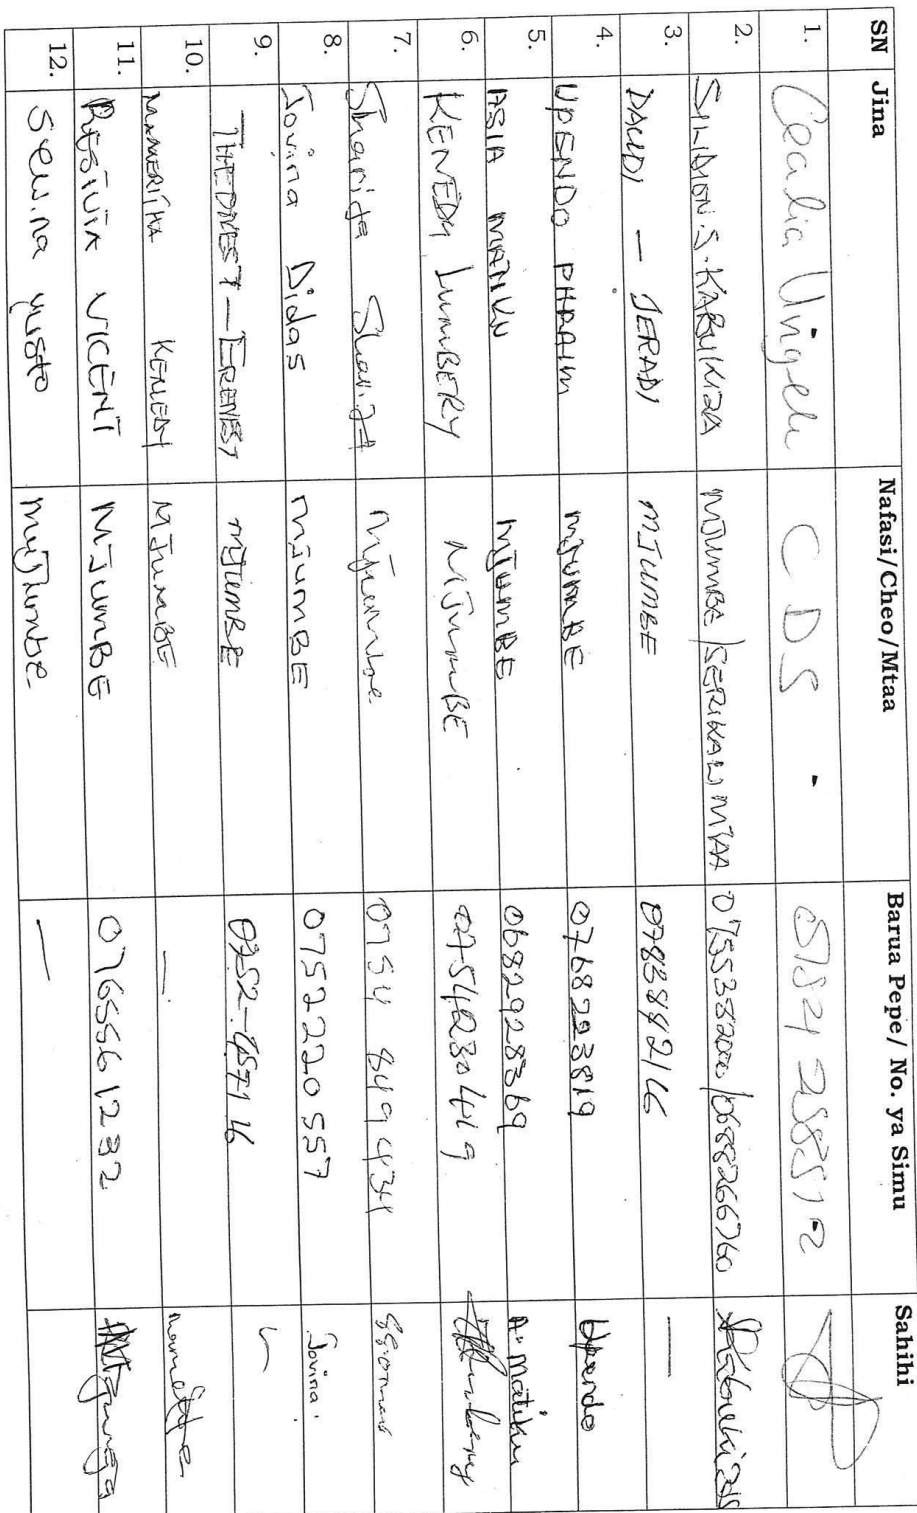 SN Jina Nafasi/Cheo/Mtaa Barua Pepe/ No. ya Simu Sahihi
1. Cealia CDS
2. SILIDION S. KABUKIZA MJUMBE/SERIKALI MTAA 0755382000/0688266760
3. DAUDI - JERADI MJUMBE
4. UPENDO PHRAIM MJUMBE 0768223819 Upendo
5. ASIA MATIKU MJUMBE 0682928369 A. matiku
6. KENEDY LUMBERY MJUMBE
7. Sharifa Sharifa Mjumbe 0754 849 434
8. Jovina Didas MJUMBE 0752220557 Jovina
9. THEONEST - ERENEST MJUMBE
10. MAMERITHA KENEDY MJUMBE —
11. RESTUTA VICENT MJUMBE 0765561232
12. yusto mujumbe —